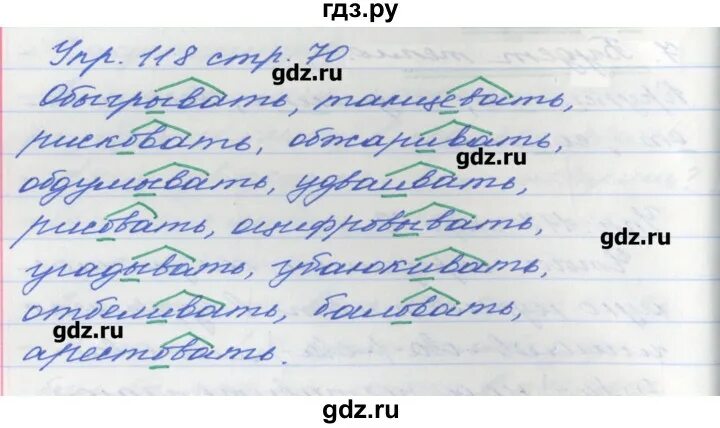 гдз.ру
Упр. 118 стр. 70
gdz.ru
Обыгрывать, танцевать,
рисковать, обжаривать,
gdz.ru
обдумывать, удваивать,
рисовать, оцифровывать,
gdz.ru
угадывать, убаюкивать,
отбеливать, баловать,
gdz.ru
арестовать.
gdz.ru